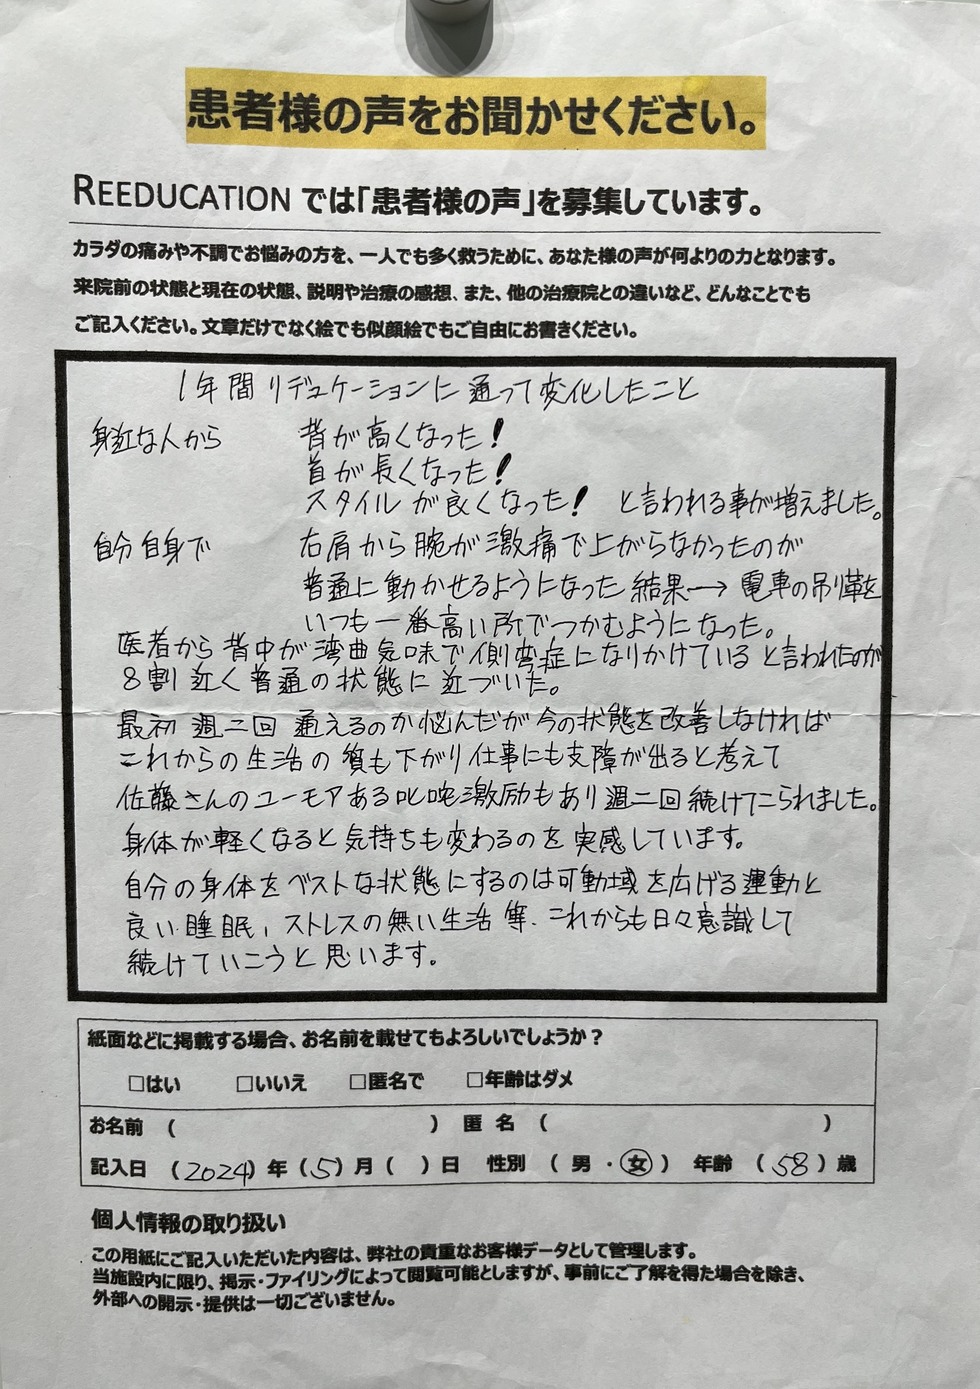 患者様の声をお聞かせください。
REEDUCATION では「患者様の声」を募集しています。
カラダの痛みや不調でお悩みの方を、一人でも多く救うために、あなた様の声が何よりの力となります。
来院前の状態と現在の状態、説明や治療の感想、また、他の治療院との違いなど、どんなことでも
ご記入ください。文章だけでなく絵でも似顔絵でもご自由にお書きください。
1年間リデュケーションに通って変化したこと
身近な人から 背が高くなった!
首が長くなった!
スタイルが良くなった! と言われる事が増えました。
自分自身で 右肩から腕が激痛で上がらなかったのが
普通に動かせるようになった 結果→電車の吊り革を
いつも一番高い所でつかむようになった。
医者から背中が湾曲気味で側弯症になりかけていると言われたのが
8割近く普通の状態に近づいた。
最初 週二回 通えるのか悩んだが今の状態を改善しなければ
これからの生活の質も下がり仕事にも支障が出ると考えて
佐藤さんのユーモアある叱咤激励もあり週二回続けてこられました。
身体が軽くなると気持ちも変わるのを実感しています。
自分の身体をベストな状態にするのは可動域を広げる運動と
良い睡眠、ストレスの無い生活等、これからも日々意識して
続けていこうと思います。
紙面などに掲載する場合、お名前を載せてもよろしいでしょうか?
□はい □いいえ □匿名で □年齢はダメ
お名前 ( ) 匿名 ( )
記入日 (2024)年(5)月( )日 性別 (男・女) 年齢 (58)歳
個人情報の取り扱い
この用紙にご記入いただいた内容は、弊社の貴重なお客様データとして管理します。
当施設内に限り、掲示・ファイリングによって閲覧可能としますが、事前にご了解を得た場合を除き、
外部への開示・提供は一切ございません。